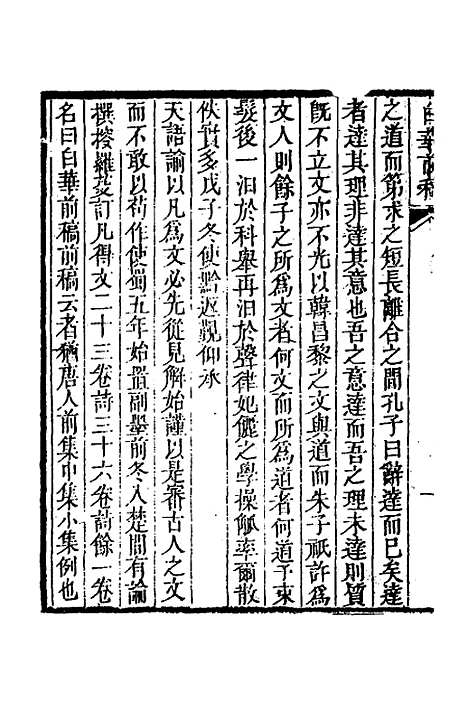 白華前稿
之道而第求之短長離合之間孔子曰辭達而已矣達
者達其理非達其意也吾之意達而吾之理未達則質
旣不立文亦不光以韓昌黎之文與道而朱子祇許爲
文人則餘子之所爲文者何文而所爲道者何道予束
髮後一汨於科舉再汨於聲律妃儷之學操觚率爾散
佚實多戊子冬使黔返覲仰承
天語諭以凡爲文必先從見解始謹以是審古人之文
而不敢以苟作使蜀五年始置副墨前冬入楚間有論
撰搜羅芟訂凡得文二十三卷詩三十六卷詩餘一卷
名曰白華前稿前稿云者猶唐人前集中集小集例也